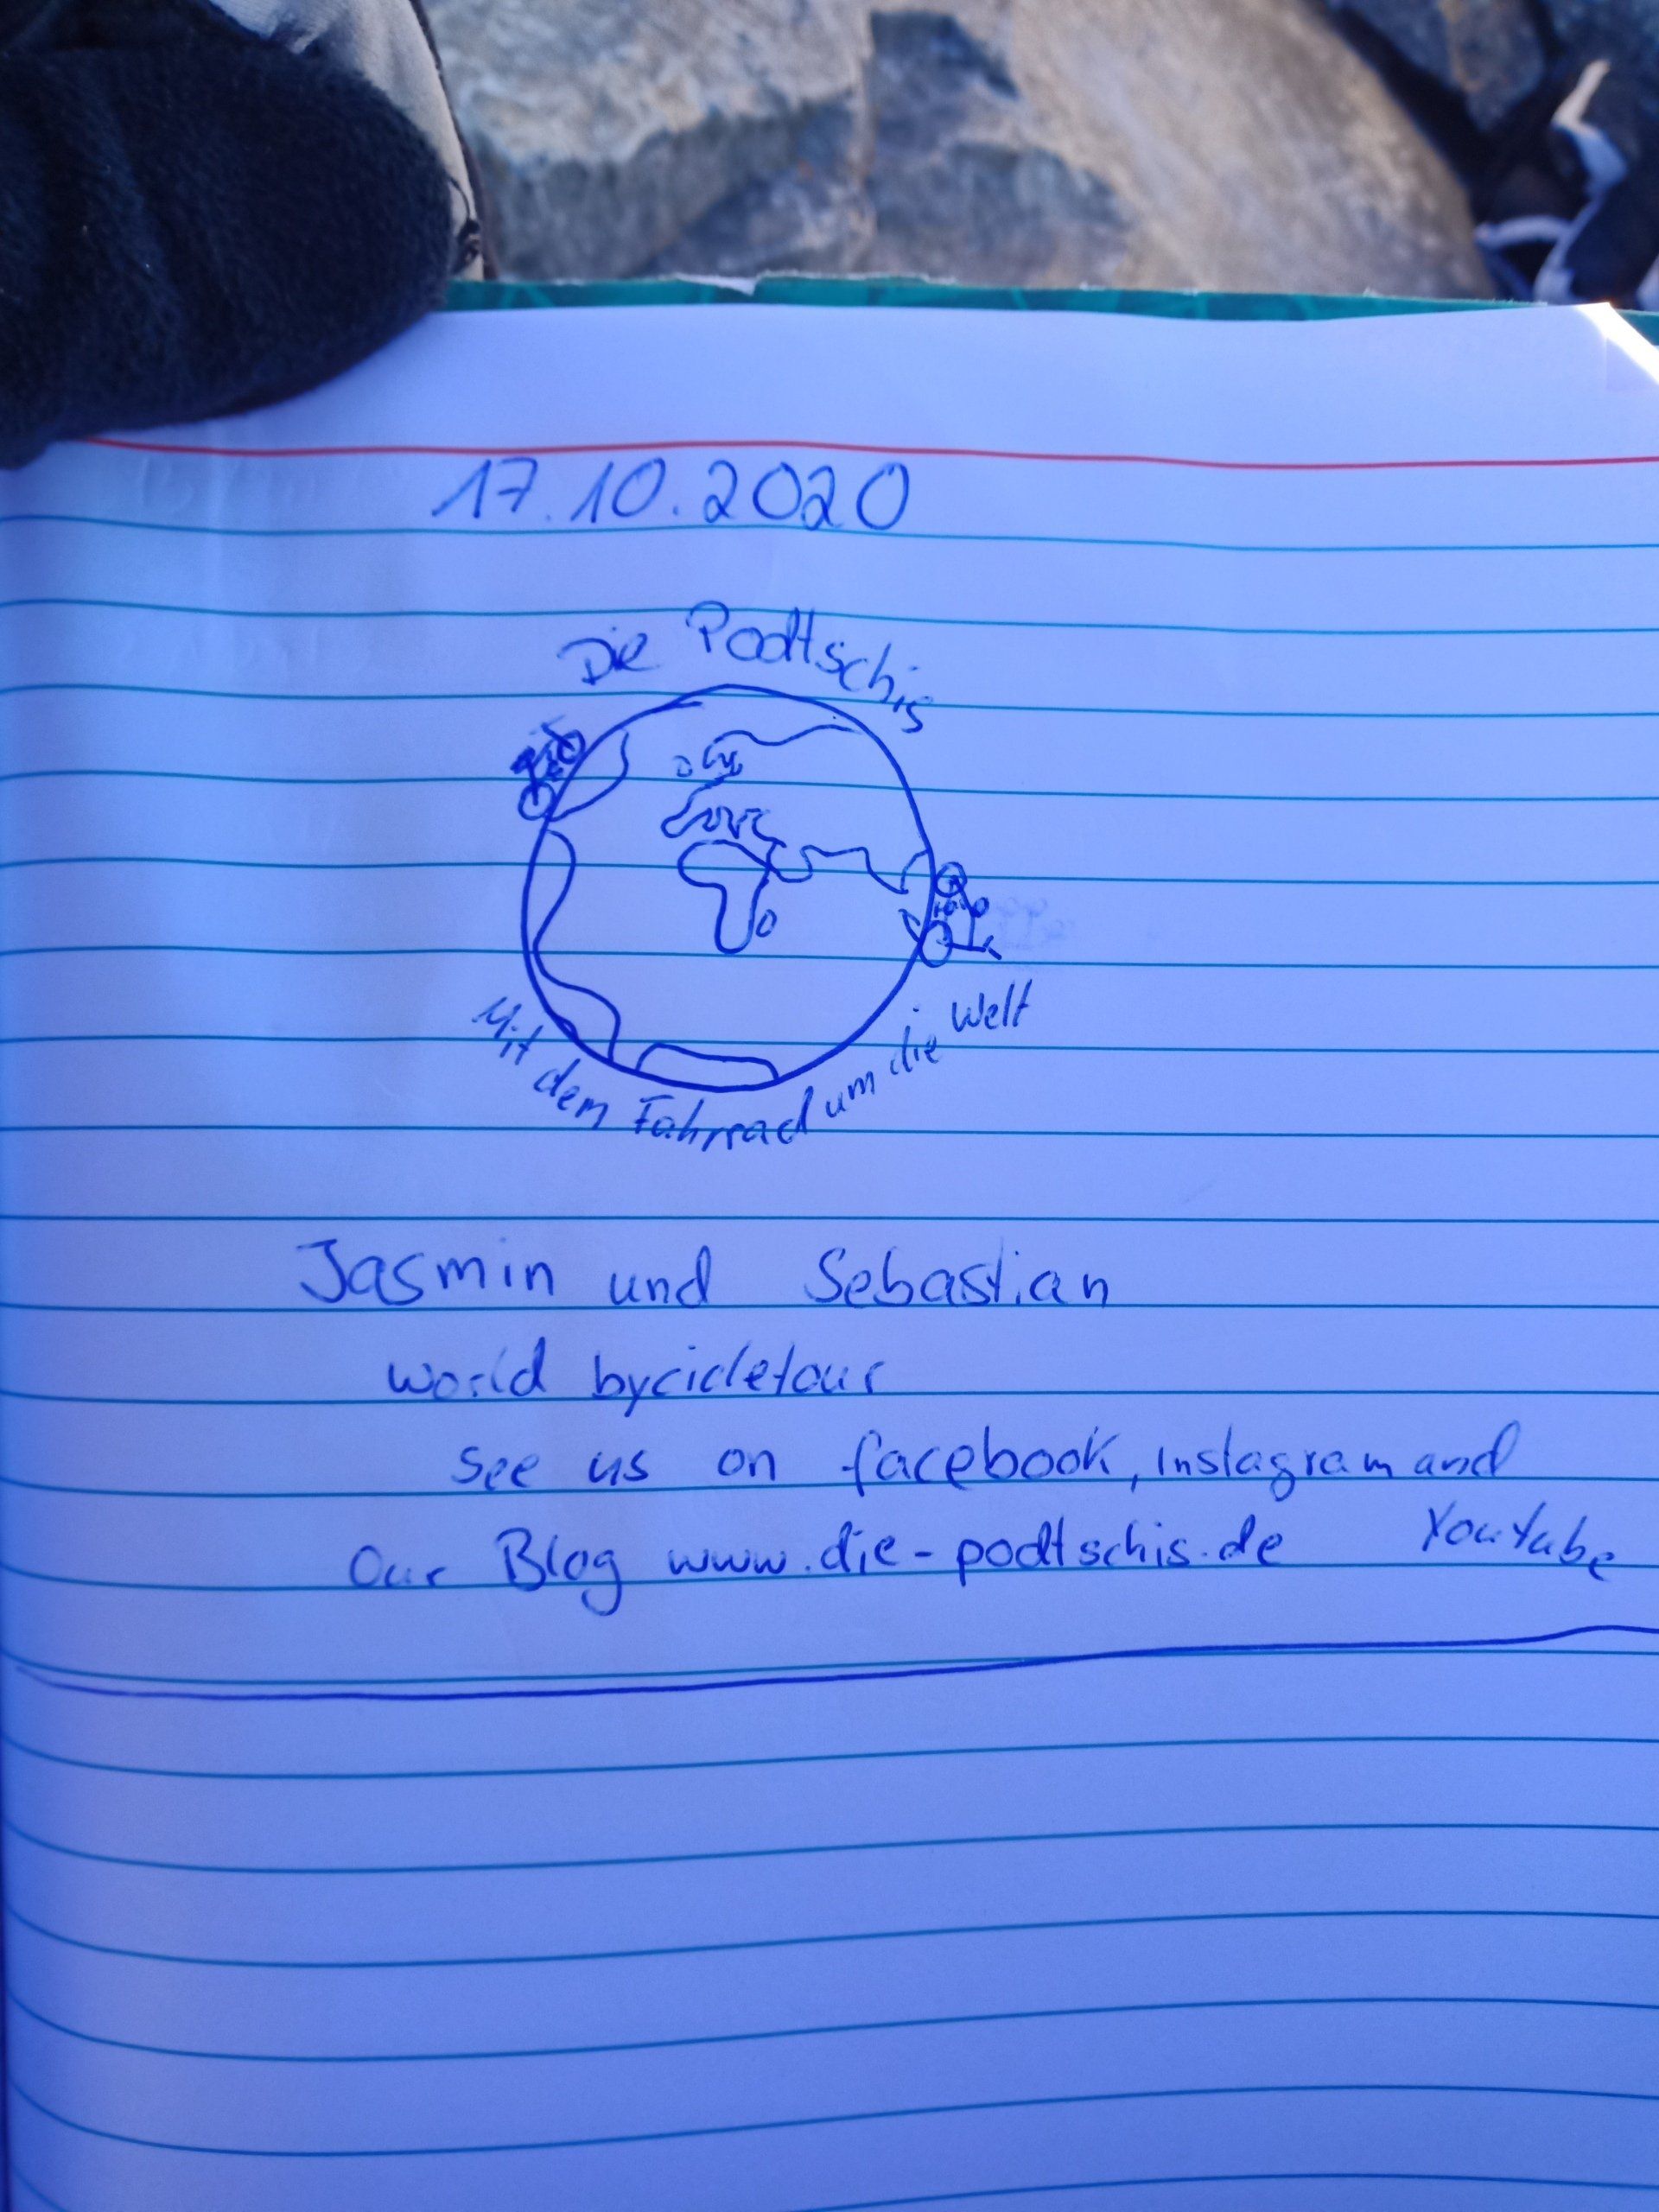 17.10.2020
Die Podtschis
Mit dem Fahrrad um die Welt
Jasmin und Sebastian
world bycicletour
see us on facebook, instagram and
our Blog www.die-podtschis.de Youtube